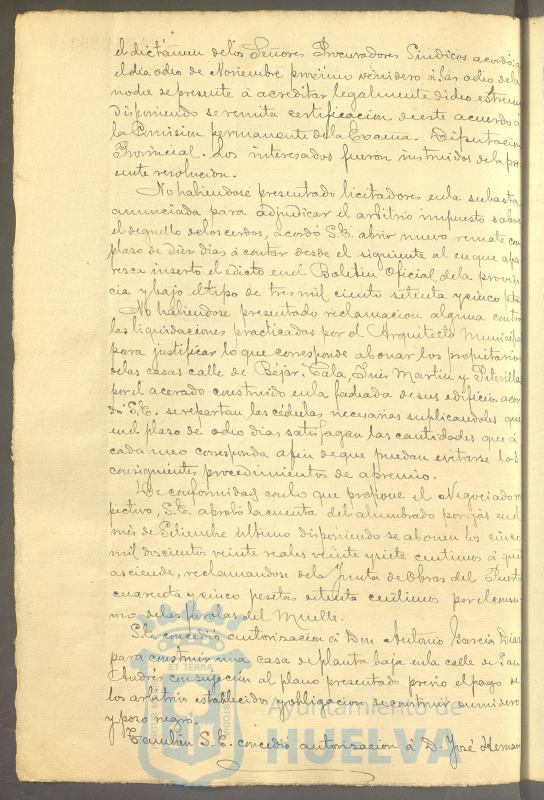 el dictámen de los Señores Procuradores Síndicos acordó: q
el dia ocho de Noviembre procsimo venidero á las ocho de la
noche se presente á acreditar legalmente dicho estremo
disponiendo se remita certificacion de este acuerdo á
la Comision permanente de la Excma. Diputacion
Provincial. Los interesados fueron instruidos de la pre
sente resolucion.
No habiendose presentado licitadores en la subasta
anunciada para adjudicar el arbitrio impuesto sobre
el deguello de los cerdos, acordó S.E. abrir nuevo remate con
plazo de diez dias á contar desde el siguiente al en que apa
resca inserto el edicto en el Boletin Oficial de la provin
cia y bajo el tipo de tres mil ciento setenta y cinco ptas
No habiendose presentado reclamacion alguna contra
las liquidaciones practicadas por el Arquitecto Municipal
para justificar lo que corresponde abonar los propietarios
de las casas calle de Béjar, Cala, Inés Martin y
por el acerado construido en la fachada de sus edificios acor
dó S.E. se repartan las cédulas necesarias suplicandoles que
en el plazo de ocho dias satisfagan las cantidades que á
cada uno corresponda á fin de que puedan evitarse los
consiguientes procedimientos de apremio.
De conformidad con lo que propone el Negociado res
pectivo, S.E. aprobó la cuenta del alumbrado por gas en el
mes de Setiembre último disponiendo se abonen los cinco
mil doscientos veinte reales veinte y siete centimos á que
asciende, reclamandose de la Junta de Obras del Puerto
cuarenta y cinco pesetas setenta centimos por el consu-
mo de las farolas del Muelle.
S.E. concedió autorizacion á Don Antonio García Diaz
para construir una casa de planta baja en la calle de San
Andrés con sujecion al plano presentado previo el pago de
los arbitrios establecidos y obligacion de construir sumidero
y pozo negro.
Tambien S.E. concedió autorizacion á D. José Hernan
Ayuntamiento de
HUELVA